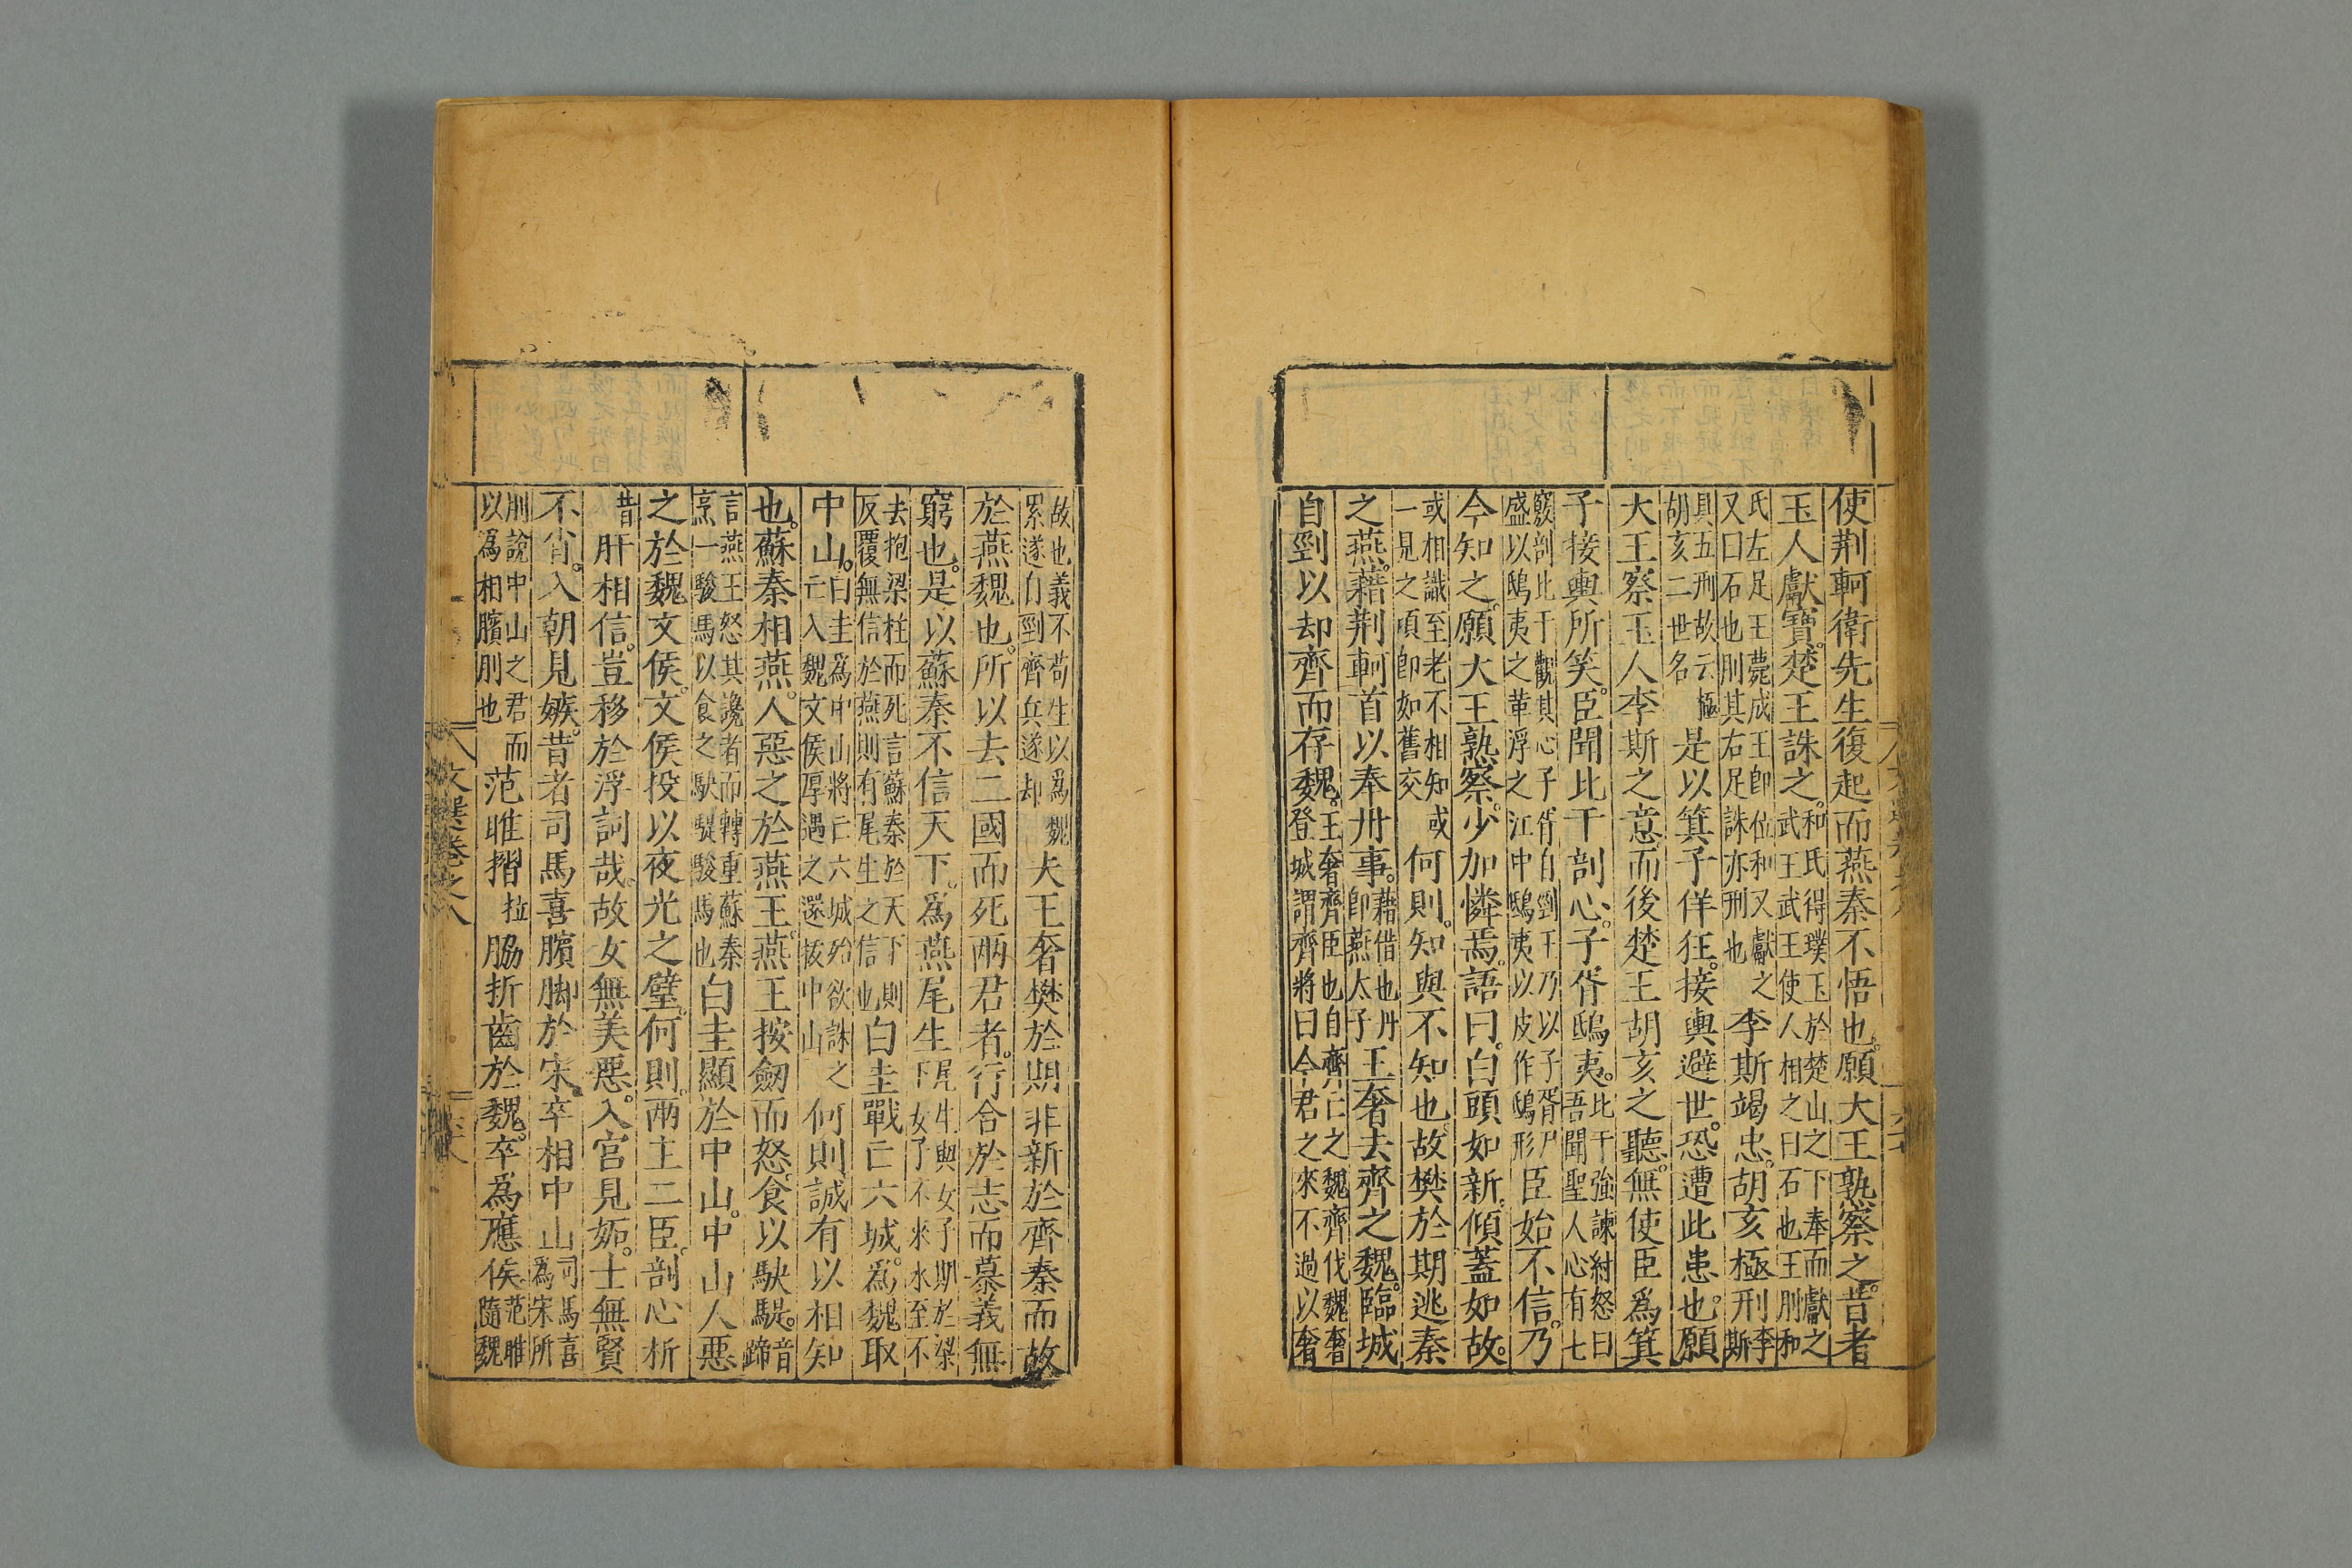 使荆軻衛先生復起而燕秦不悟也願大王熟察之昔者
玉人獻寶楚王誅之和氏得璞玉於楚山之下奉而獻之武王武王使人相之曰石也王刖和
氏左足王薨成王即位和又獻之又曰石也刖其右足誅亦刑也李斯竭忠胡亥極刑李斯
具五刑故云極胡亥二世名是以箕子佯狂接輿避世恐遭此患也願
大王察玉人李斯之意而後楚王胡亥之聽無使臣爲箕
子接輿所笑臣聞比干剖心子胥鴟夷比干強諫紂怒曰吾聞聖人心有七
竅剖比干觀其心子胥自剄王乃以子胥尸盛以鴟夷之革浮之江中鴟夷以皮作鴟形臣始不信乃
今知之願大王熟察少加憐焉語曰白頭如新傾蓋如故
或相識至老不相知或一見之頃即如舊交何則知與不知也故樊於期逃秦
之燕藉荆軻首以奉丹事藉借也丹即燕太子王奢去齊之魏臨城
自剄以却齊而存魏王奢齊臣也自齊亡之魏齊伐魏奢登城謂齊將曰今君之來不過以奢
故也義不苟生以爲魏累遂自剄齊兵遂却夫王奢樊於期非新於齊秦而故
於燕魏也所以去二國而死兩君者行合於志而慕義無
窮也是以蘇秦不信天下爲燕尾生尾生與女子期於梁下女子不來水至不
去抱梁柱而死言蘇秦於天下則反覆無信於燕則有尾生之信也白圭戰亡六城爲魏取
中山白圭爲中山將亡六城殆欲誅之亡入魏文侯厚遇之還拔中山何則誠有以相知
也蘇秦相燕人惡之於燕王燕王按劒而怒食以駃騠音蹄
言燕王怒其讒者而轉重蘇秦烹一駿馬以食之駃騠駿馬也白圭顯於中山中山人惡
之於魏文侯文侯投以夜光之璧何則兩主二臣剖心析
昔肝相信豈移於浮詞哉故女無美惡入宮見妬士無賢
不省入朝見嫉昔者司馬喜臏脚於宋卒相中山司馬喜爲宋所
刖說中山之君而以爲相臏刖也范雎摺拉脇折齒於魏卒爲應侯范雎隨魏
文選卷之八